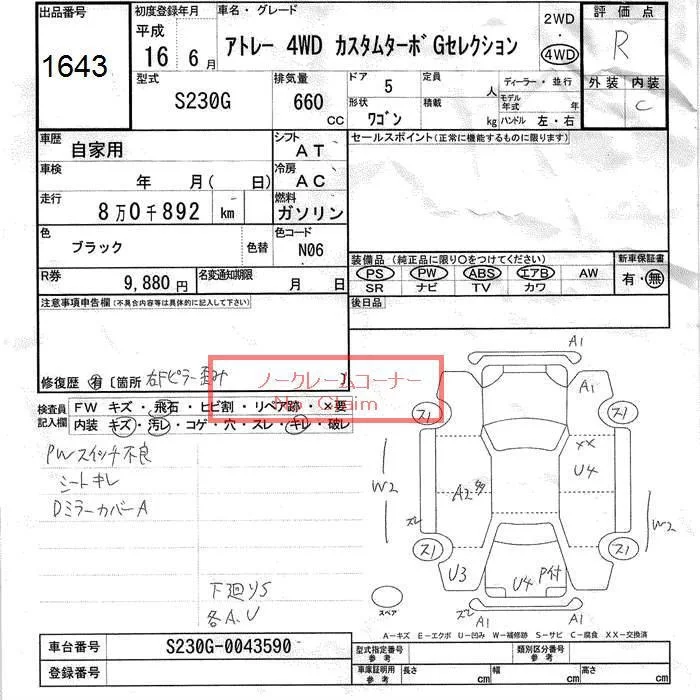 出品番号
1643
初度登録年月
平成
16 6月
車名・グレード
アトレー 4WD カスタムターボ Gセレクション
2WD
・
4WD
評価点
R
外装 内装
C
型式
S230G
排気量
660
cc
ドア
5
形状
ワゴン
定員
人
積載
kg
ディーラー・並行
モデル年式 年
ハンドル 左・右
車歴
自家用
シフト
AT
車検
年 月( 日)
冷房
AC
走行
8万0千892 km
燃料
ガソリン
色
ブラック
色替
色コード
N06
R券
9,880円
名変通知期限
月 日
セールスポイント(正常に機能するものに限ります)
装備品(純正品に限り○をつけてください)
新車保証書
PS PW ABS エアB AW
有・無
SR ナビ TV カワ
後日品
注意事項申告欄(不具合内容等は具体的に記入して下さい)
修復歴 有 〔箇所 右Fピラー歪み 〕
ノークレームコーナー
No Claim
検査員記入欄
FW キズ・飛石・ヒビ割・リペア跡・×要
内装 キズ・汚レ・コゲ・穴・スレ・キレ・破レ
PWスイッチ不良
シートキレ
DミラーカバーA
下廻りS
各A、U
A1
A1
ス1
ス1
××
U4
A2多
W2
W2
スレ
ス1
ス1
U3
U4
P付
スレ
A1
スペア
A-キズ E-エクボ U-凹み W-補修跡 S-サビ C-腐食 XX-交換済
車台番号
S230G-0043590
登録番号
型式指定番号 参考
類別区分番号 参考
車庫証明用 参考
長さ cm
幅 cm
高さ cm